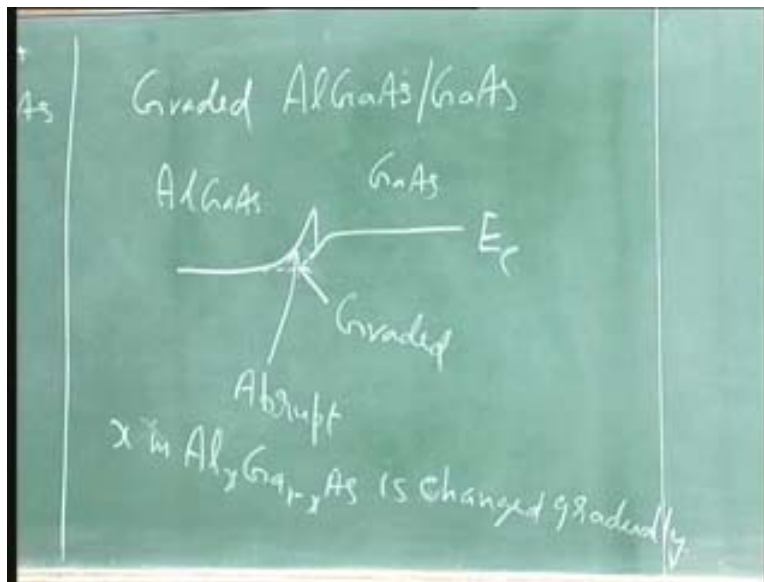 As
Graded AlGaAs/GaAs
AlGaAs
GaAs
Ec
Graded
Abrupt
x in AlxGa1-xAs is changed gradually